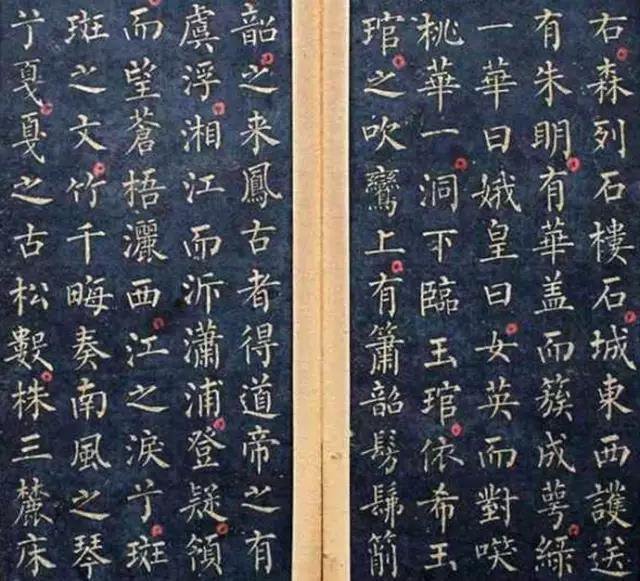 右森列石樓石城東西護送
有朱明有華盖而簇成萼緑
一華曰娥皇曰女英而對咲
桃華一洞下臨玉琯依希玉
琯之吹鸞上有簫韶髣髴箾
韶之来鳳古者得道帝之有
虞浮湘江而泝瀟浦登疑領
而望蒼梧灑西江之淚于斑
斑之文竹千晦奏南風之琴
于戛戛之古松數株三麓床